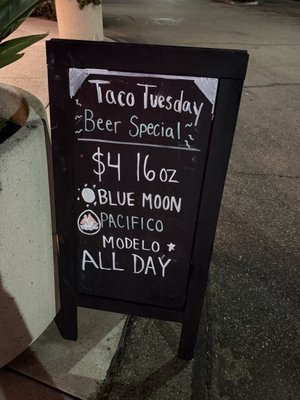 Taco Tuesday
Beer Special
$4 16oz
BLUE MOON
PACIFICO
MODELO
ALL DAY